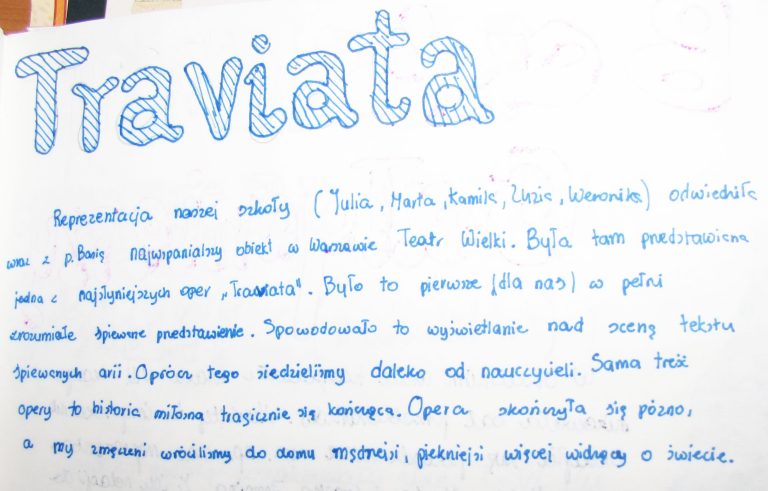 Traviata
Reprezentacja naszej szkoły (Julia, Marta, Kamila, Zuzia, Weronika) odwiedziła
wraz z p. Basią najwspanialszy obiekt w Warszawie Teatr Wielki. Była tam przedstawiona
jedna z najsłynniejszych oper „Traviata". Było to pierwsze (dla nas) w pełni
zrozumiałe śpiewane przedstawienie. Spowodowało to wyświetlanie nad sceną tekstu
śpiewanych arii. Oprócz tego siedzieliśmy daleko od nauczycieli. Sama treść
opery to historia miłosna tragicznie się kończąca. Opera skończyła się późno,
a my zmęczeni wróciliśmy do domu mądrzejsi, piękniejsi więcej widzący o świecie.